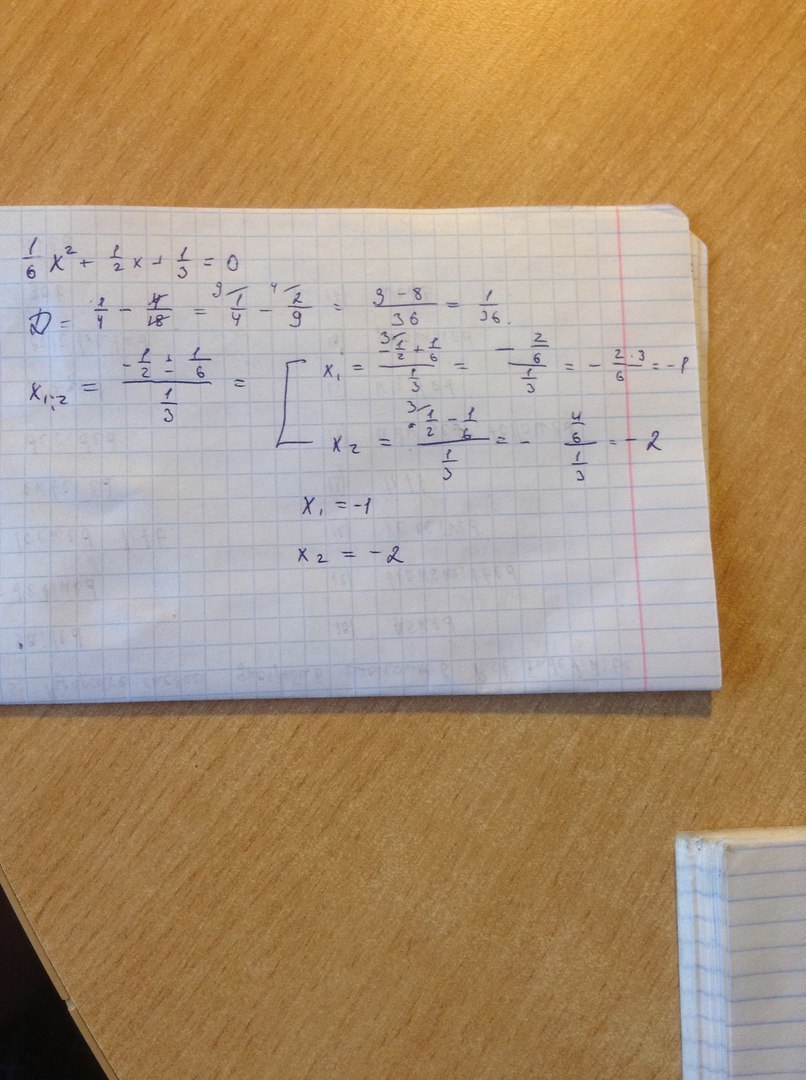 1/6 x² + 1/2 x + 1/3 = 0
D = 1/4 - 4/18 = 1/4 - 2/9 = (9 - 8)/36 = 1/36.
x₁;₂ = (-1/2 ± 1/6)/(1/3) = [ x₁ = (-1/2 + 1/6)/(1/3) = -(2/6)/(1/3) = -(2·3)/6 = -1
x₂ = (-1/2 - 1/6)/(1/3) = -(4/6)/(1/3) = -2
x₁ = -1
x₂ = -2